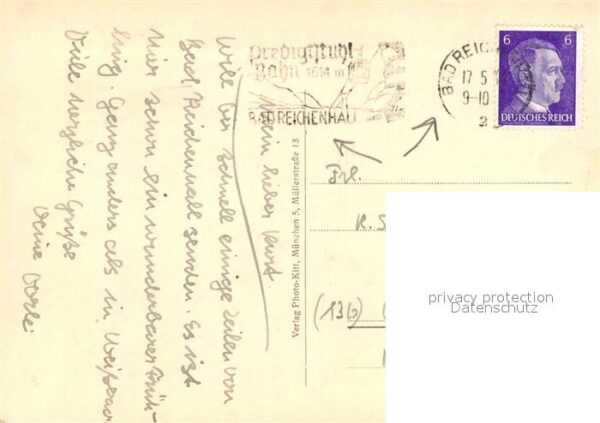 Mein lieber Kurt
Will dir schnell einige Zeilen von
Bad Reichenhall senden. Es ist
hier schon ein wunderbarer Früh-
ling. Ganz anders als in
Viele herzliche Grüße
Deine
Predigtstuhl
Bahn 1614 m
BAD REICHENHALL
BAD REICH
17 5
9-10
a
6 6
DEUTSCHES REICH
Verlag Photo-Kitt, München 5, Müllerstraße 13
Frl.
K. S
(13b)
privacy protection
Datenschutz